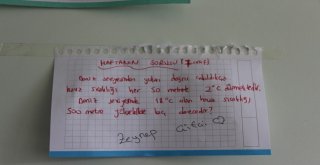 HAFTANIN SORUSU (7.SINIF)
Deniz seviyesinden yukarı doğru çıkıldıkça
hava sıcaklığı her 50 metrede 2°C
Deniz seviyesinde 18°C olan hava sıcaklığı
500 metre yükseklikte kaç derecedir?
Zeynep